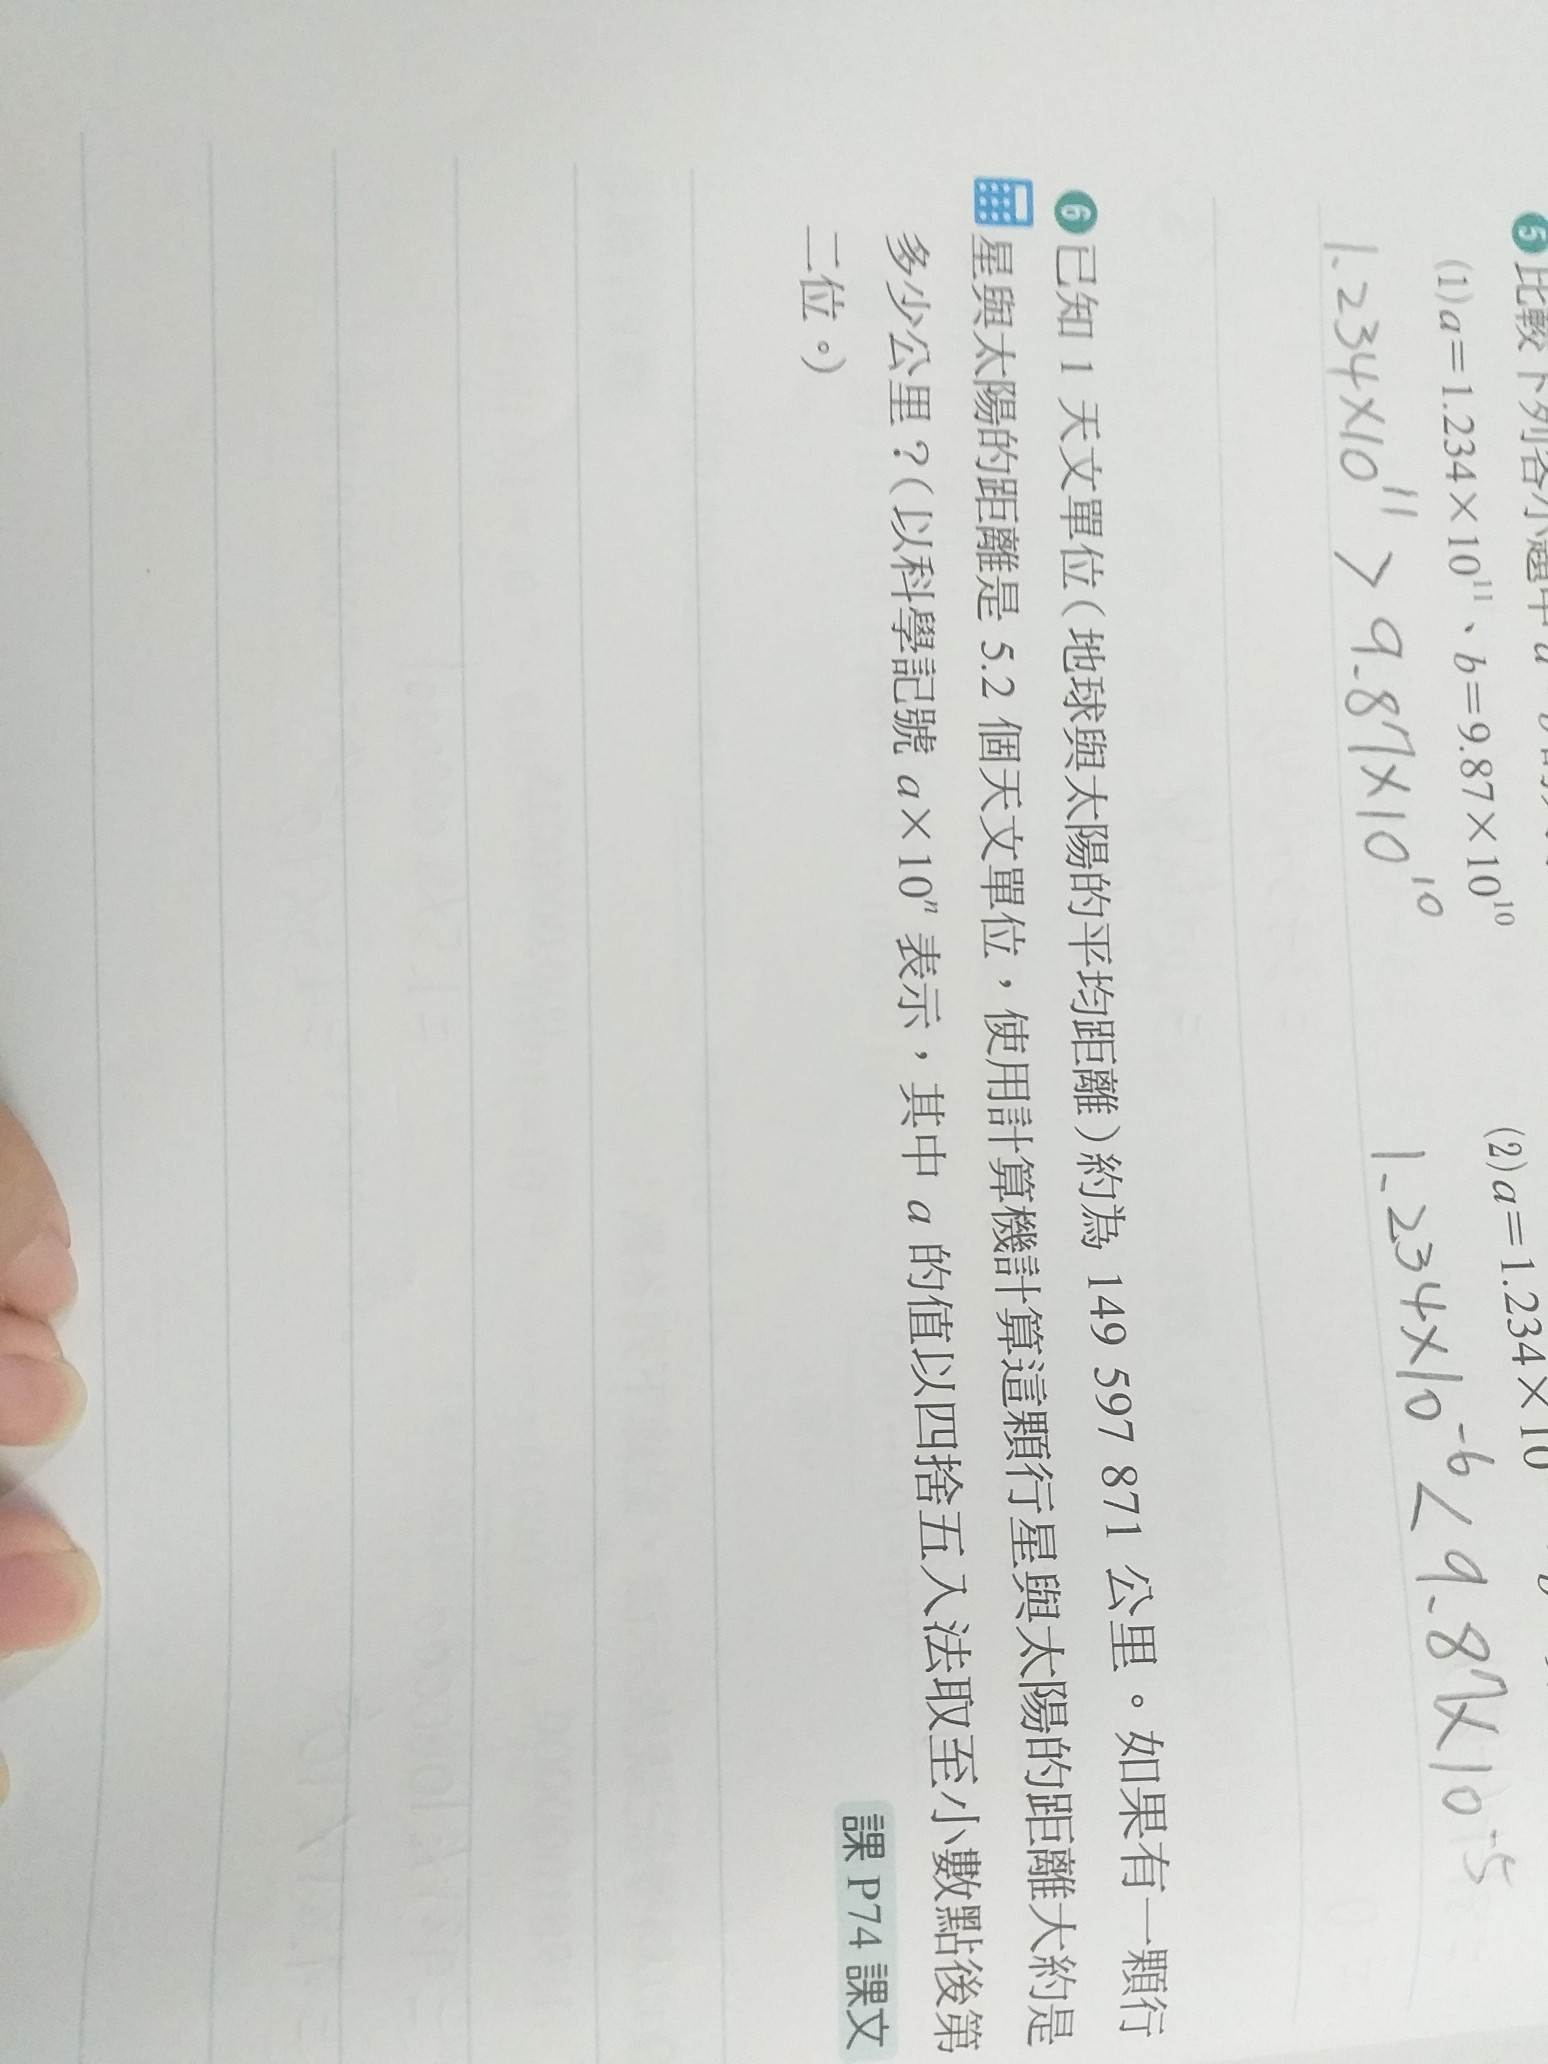 5 比較下列各小題中 a
(1) a=1.234×10¹¹、b=9.87×10¹⁰
(2) a=1.234×10
1.234×10¹¹ > 9.87×10¹⁰
1.234×10⁻⁶ < 9.87×10⁻⁵
6 已知 1 天文單位(地球與太陽的平均距離)約為 149 597 871 公里。如果有一顆行
星與太陽的距離是 5.2 個天文單位，使用計算機計算這顆行星與太陽的距離大約是
多少公里？(以科學記號 a×10ⁿ 表示，其中 a 的值以四捨五入法取至小數點後第
二位。)
課 P74 課文